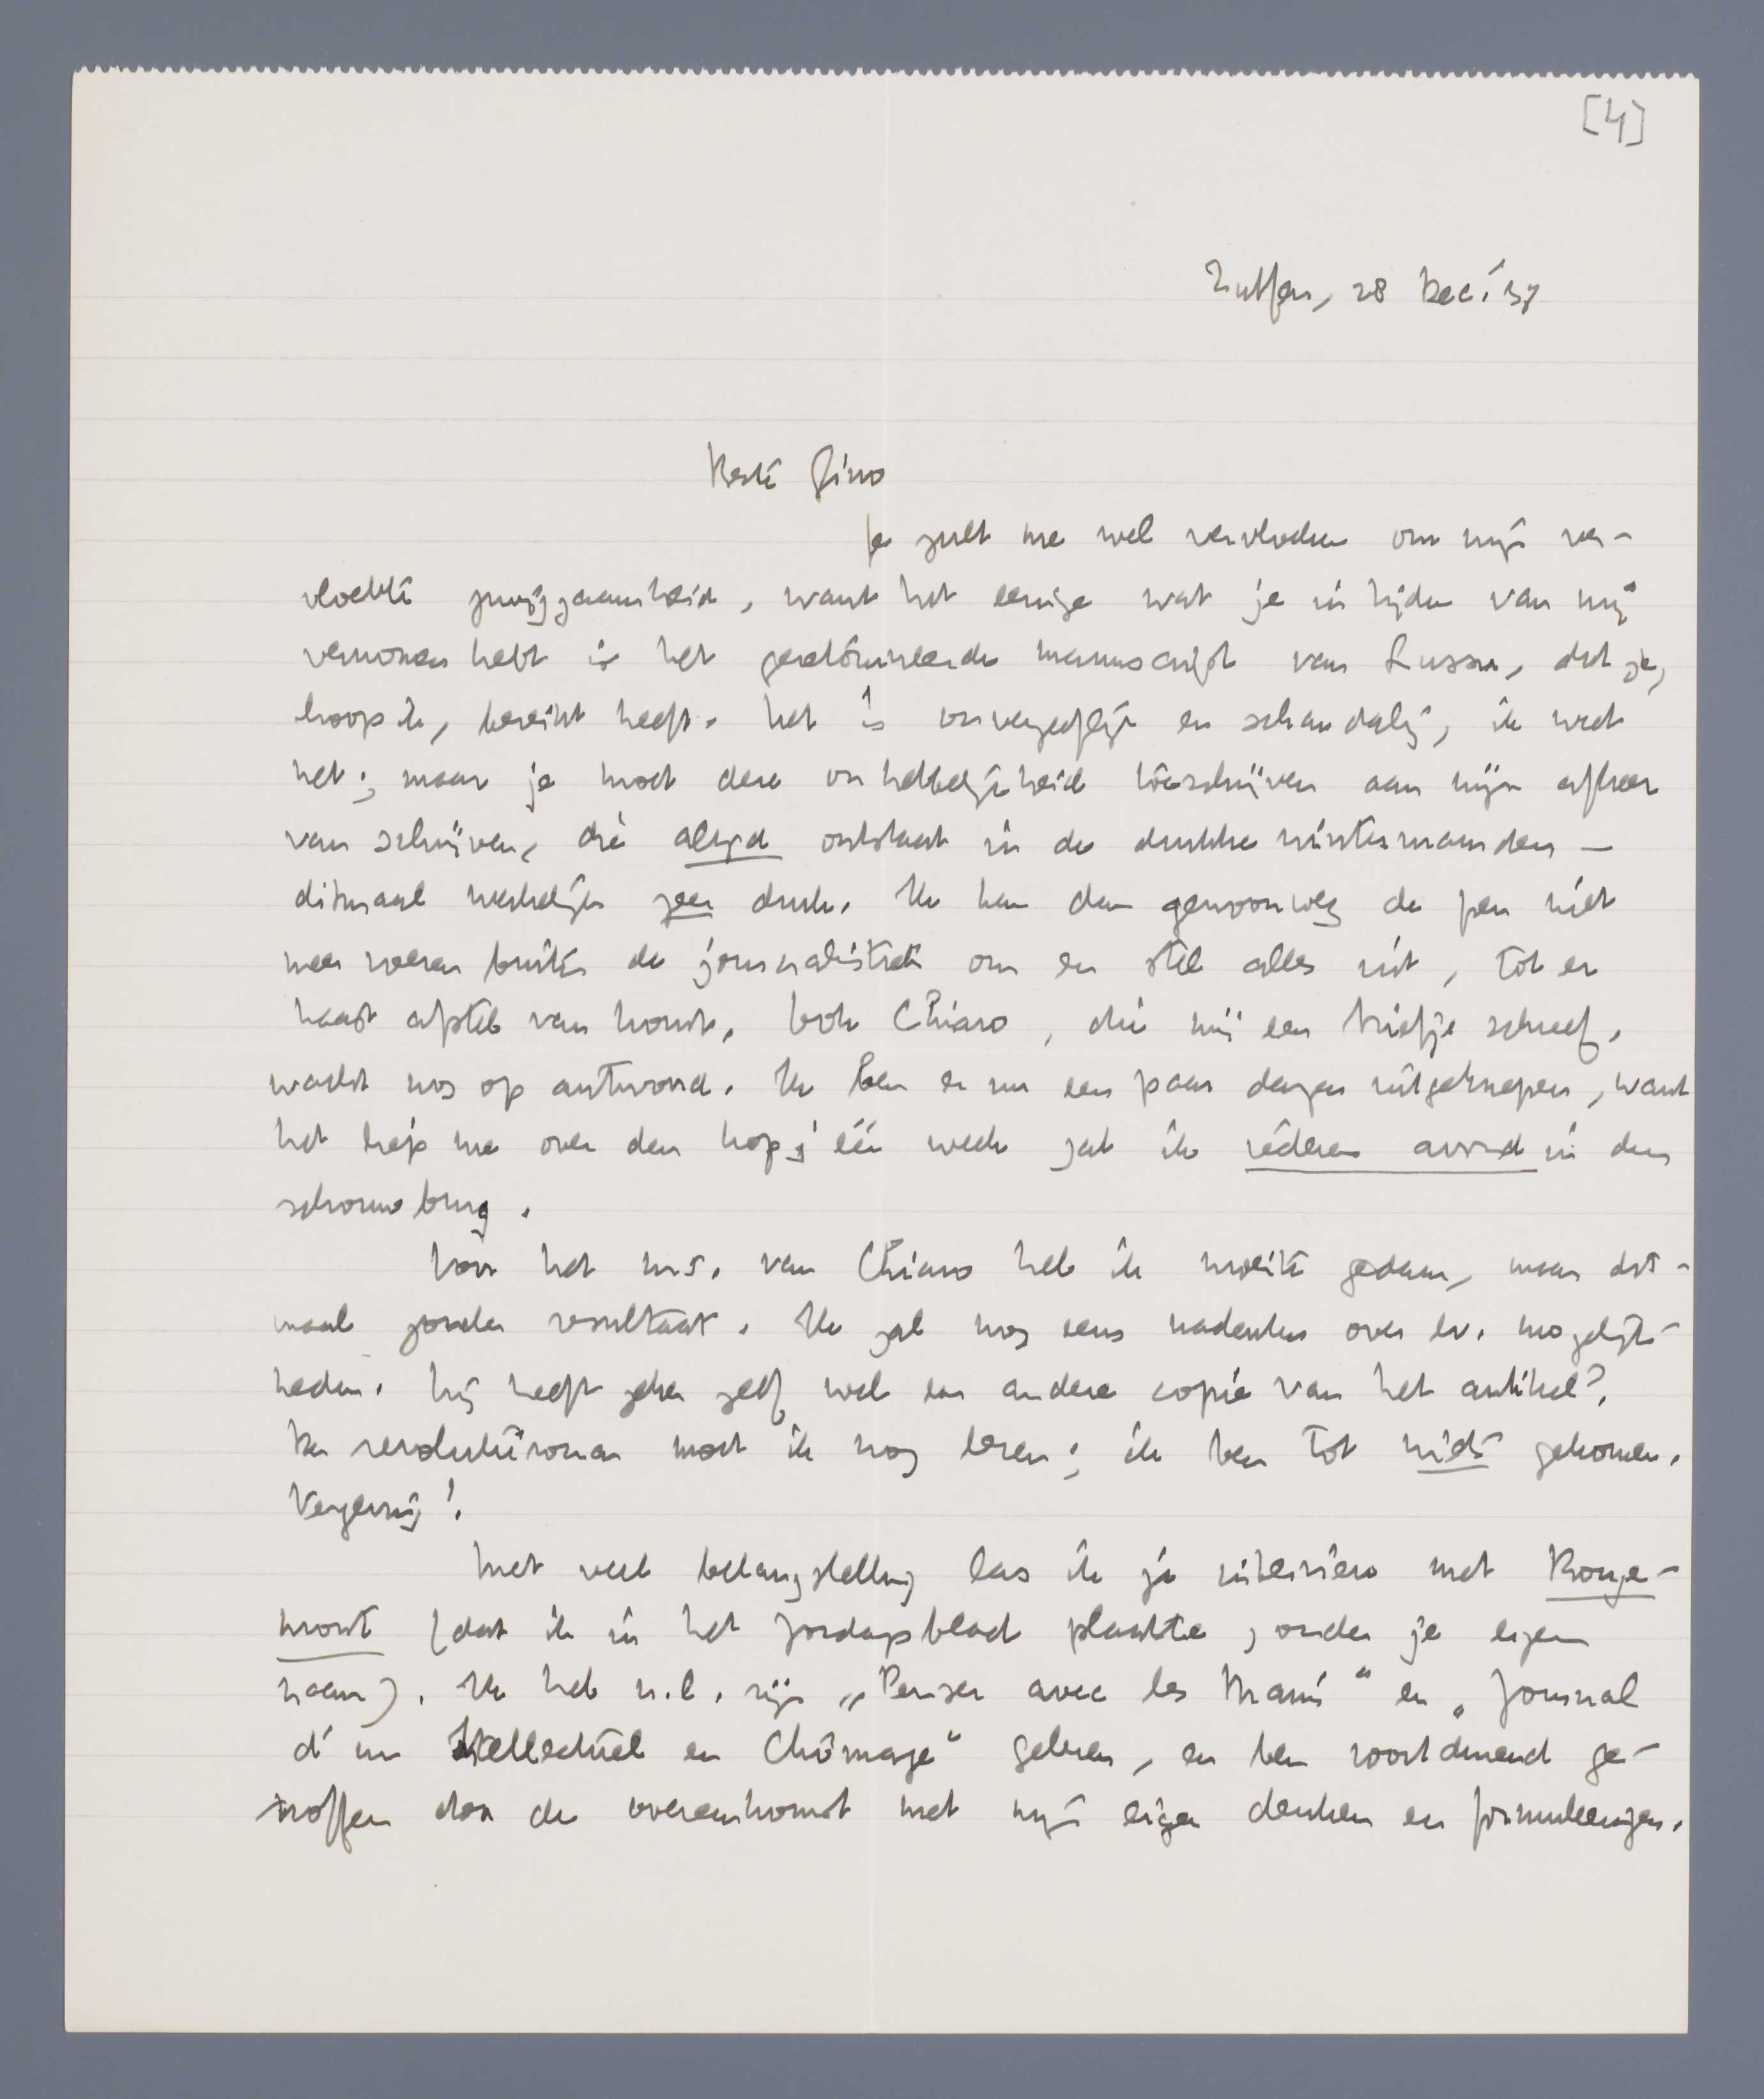 [4]
Zutfen, 28 Dec. '37
Beste Gino
Je zult me wel vervloeken om mijn ver-
vloekte zwijgzaamheid, want het eenige wat je in tijden van mij
vernomen hebt is het geretourneerde manuscript van Lussu, dat je,
hoop ik, bereikt heeft. Het is onvergeeflijk en schandalig, ik weet
het; maar je moet deze onhebbelijkheid toeschrijven aan mijn afkeer
van schrijven, die altijd ontstaat in de drukke wintermaanden —
ditmaal werkelijk zeer druk. Ik kan dan gewoonweg de pen niet
meer voeren buiten de journalistiek om en stel alles uit, tot er
haast afstel van komt. Ook Chiaro, die mij een briefje schreef,
wacht nog op antwoord. Ik ben er nu een paar dagen uitgeknepen, want
het liep me over den kop; één week zat ik iederen avond in den
schouwburg.
Voor het ms. van Chiaro heb ik moeite gedaan, maar dit-
maal zonder resultaat. Ik zal nog eens nadenken over ev. mogelijk-
heden. Hij heeft zeker zelf wel een andere copie van het artikel?
De revolutieroman moet ik nog lezen; ik ben tot niets gekomen.
Vergeving!
Met veel belangstelling las ik je interview met Rouge-
mont (dat ik in het Zondagsblad plaatste, onder je eigen
naam). Ik heb n.l. zijn „Penser avec les Mains" en „Journal
d'un Intellectuel en Chômage" gelezen, en ben voortdurend ge-
troffen door de overeenkomst met mijn eigen denken en formuleeringen.